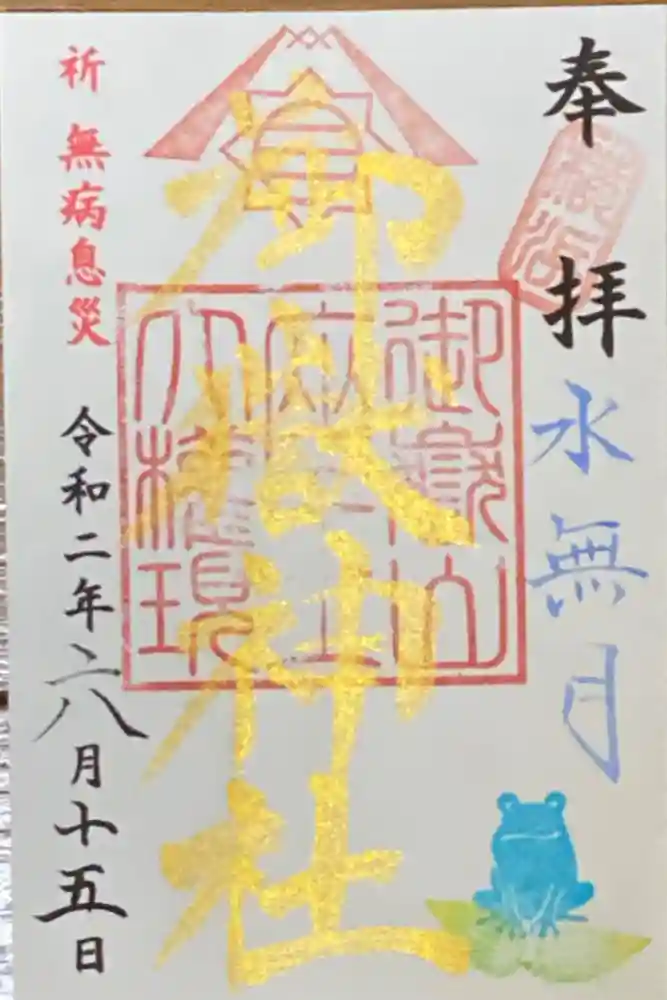 奉拝
水無月
御嶽神社
御嶽山
座王
大權現
祈 無病息災
令和二年六月十五日